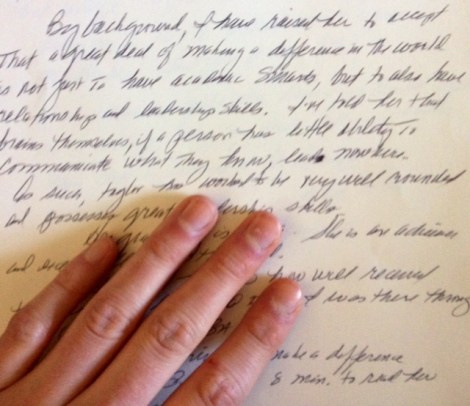 By background, I have raised her to accept
That a great deal of making a difference in the world
is not just To have academic smarts, but to also have
relationship and leadership skills. I've told her that
brains themselves, if a person has little ability To
Communicate what They know, leads nowhere.
As such, Taylor has worked to be very well rounded
and possesses great leadership skills.
She is an achiever
and
how well received
I was there through
make a difference
8 min. to read her